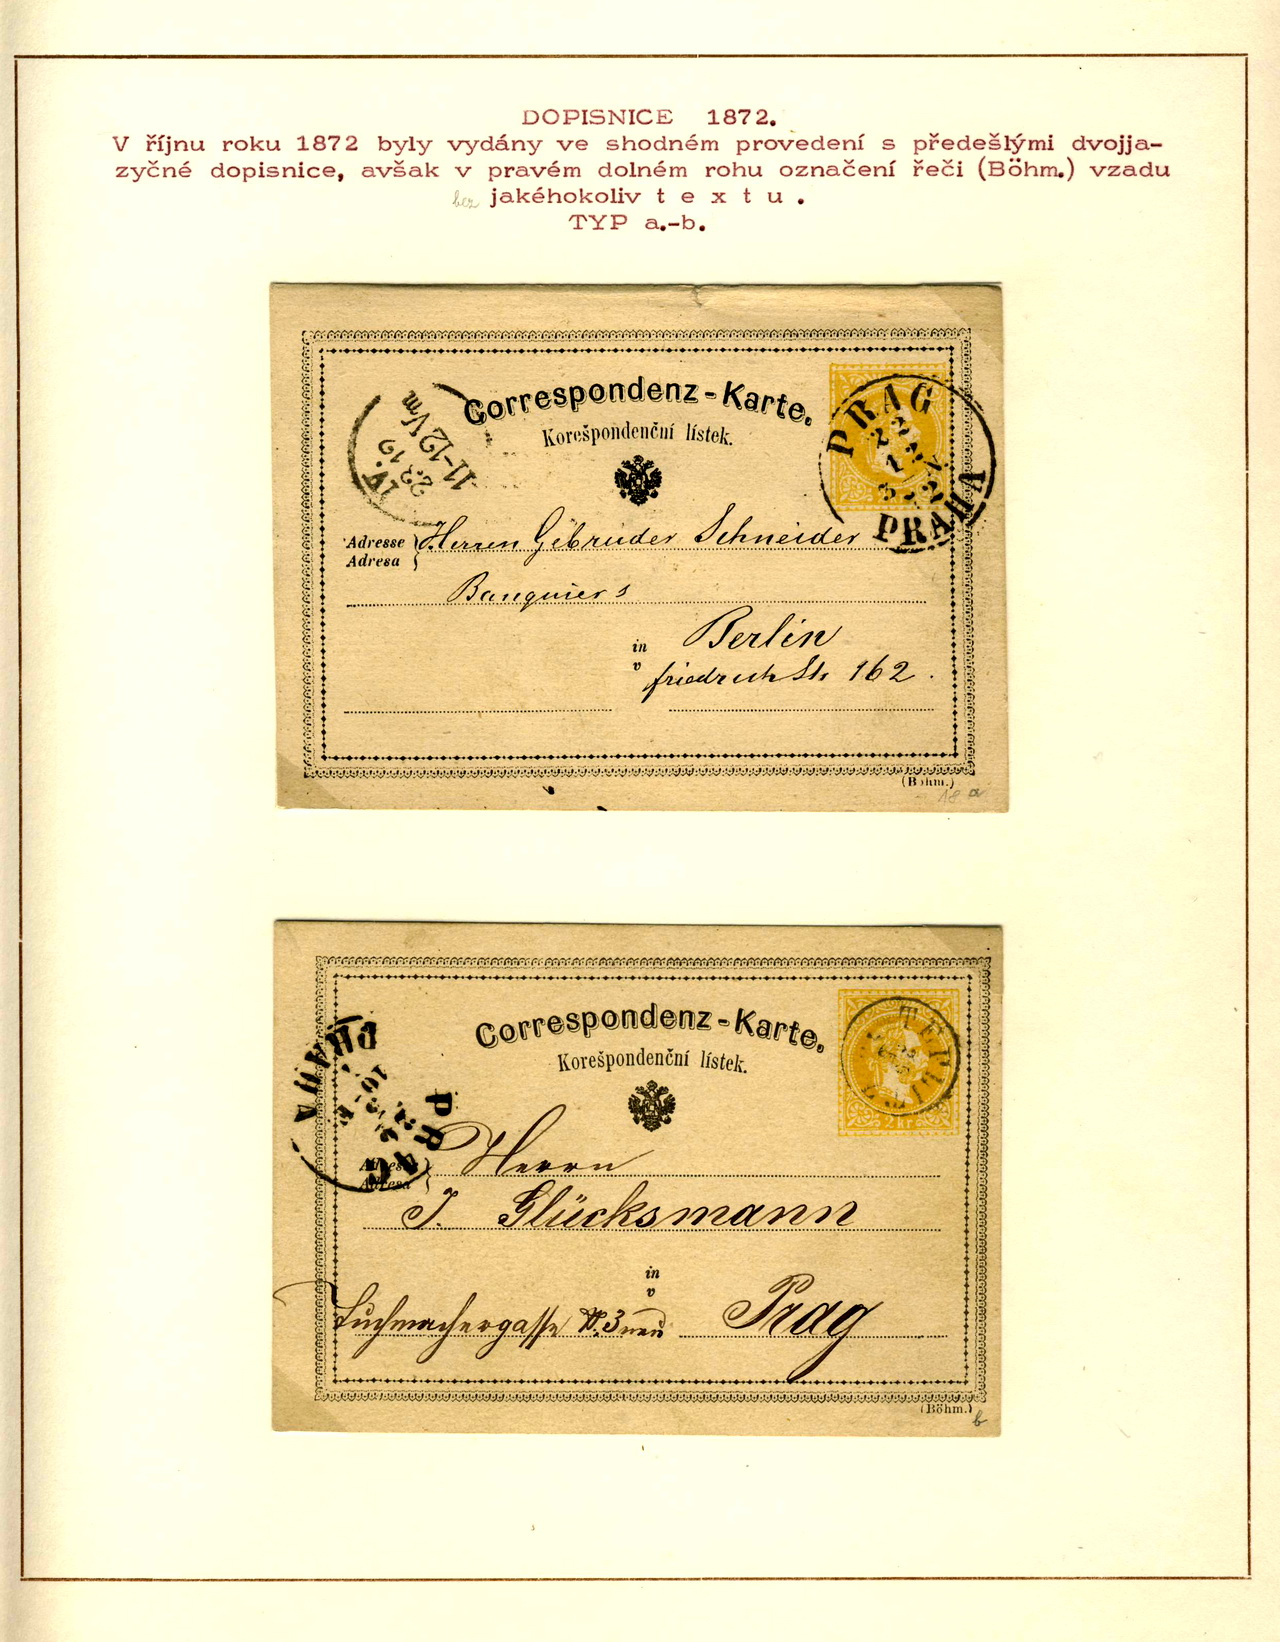 DOPISNICE 1872.
V říjnu roku 1872 byly vydány ve shodném provedení s předešlými dvojja-
zyčné dopisnice, avšak v pravém dolném rohu označení řeči (Böhm.) vzadu
bez jakéhokoliv t e x t u .
TYP a.-b.
Correspondenz-Karte.
Korešpondenční lístek.
PRAG
PRAHA
11-12 Vm
Adresse
Adresa
Herren Gebrüder Schneider
Banquiers
in
v
Berlin
Friedrich Str 162.
(Böhm.)
18 a
Correspondenz-Karte.
Korešpondenční lístek.
TEPLITZ
2 kr
PRAHA
PRAG
Adresse
Adresa
Herrn
J. Glücksmann
in
v
Tuchmachergasse N. 3 neu
Prag
(Böhm.)
b